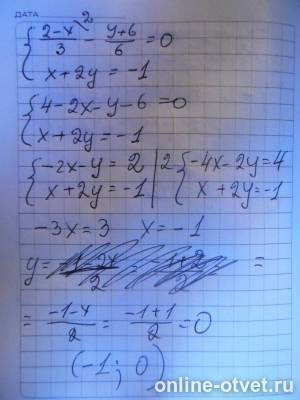 ДАТА
{ 2-x / 3 \2 - y+6 / 6 = 0
x + 2y = -1
{ 4 - 2x - y - 6 = 0
x + 2y = -1
{ -2x - y = 2 | 2 { -4x - 2y = 4
x + 2y = -1 | x + 2y = -1
-3x = 3 x = -1
y = =
= -1-x / 2 = -1+1 / 2 = 0
(-1; 0)
online-otvet.ru